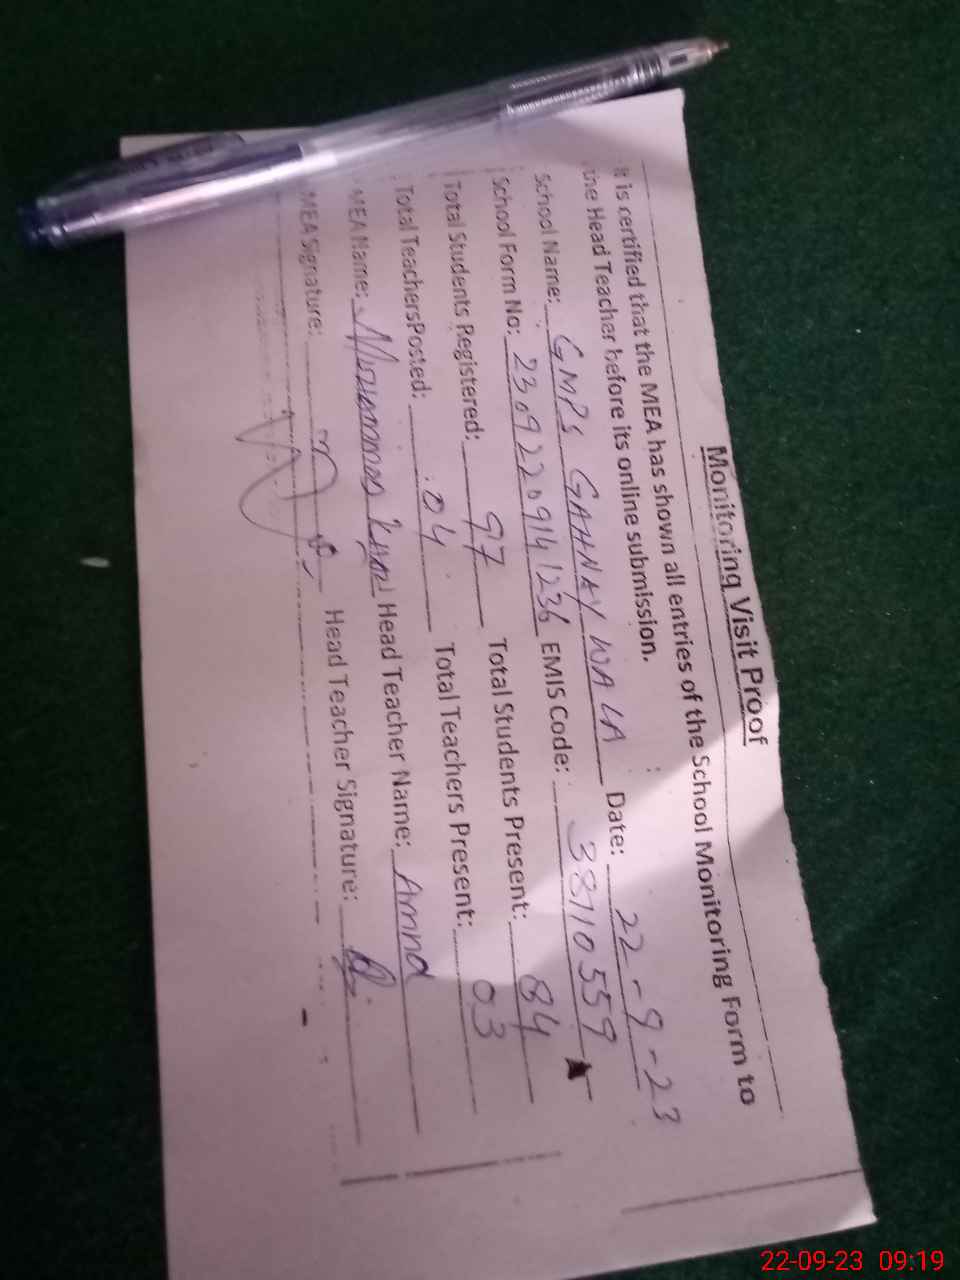 Monitoring Visit Proof
It is certified that the MEA has shown all entries of the School Monitoring Form to
the Head Teacher before its online submission.
School Name: GMPS GAHNAY WALA Date: 22-9-23
School Form No: 23092209141236 EMIS Code: 38710559
Total Students Registered: 97 Total Students Present: 84
Total TeachersPosted: 04 Total Teachers Present: 03
MEA Name: Muhammad Head Teacher Name: Amna
MEA Signature: Head Teacher Signature:
22-09-23 09:19